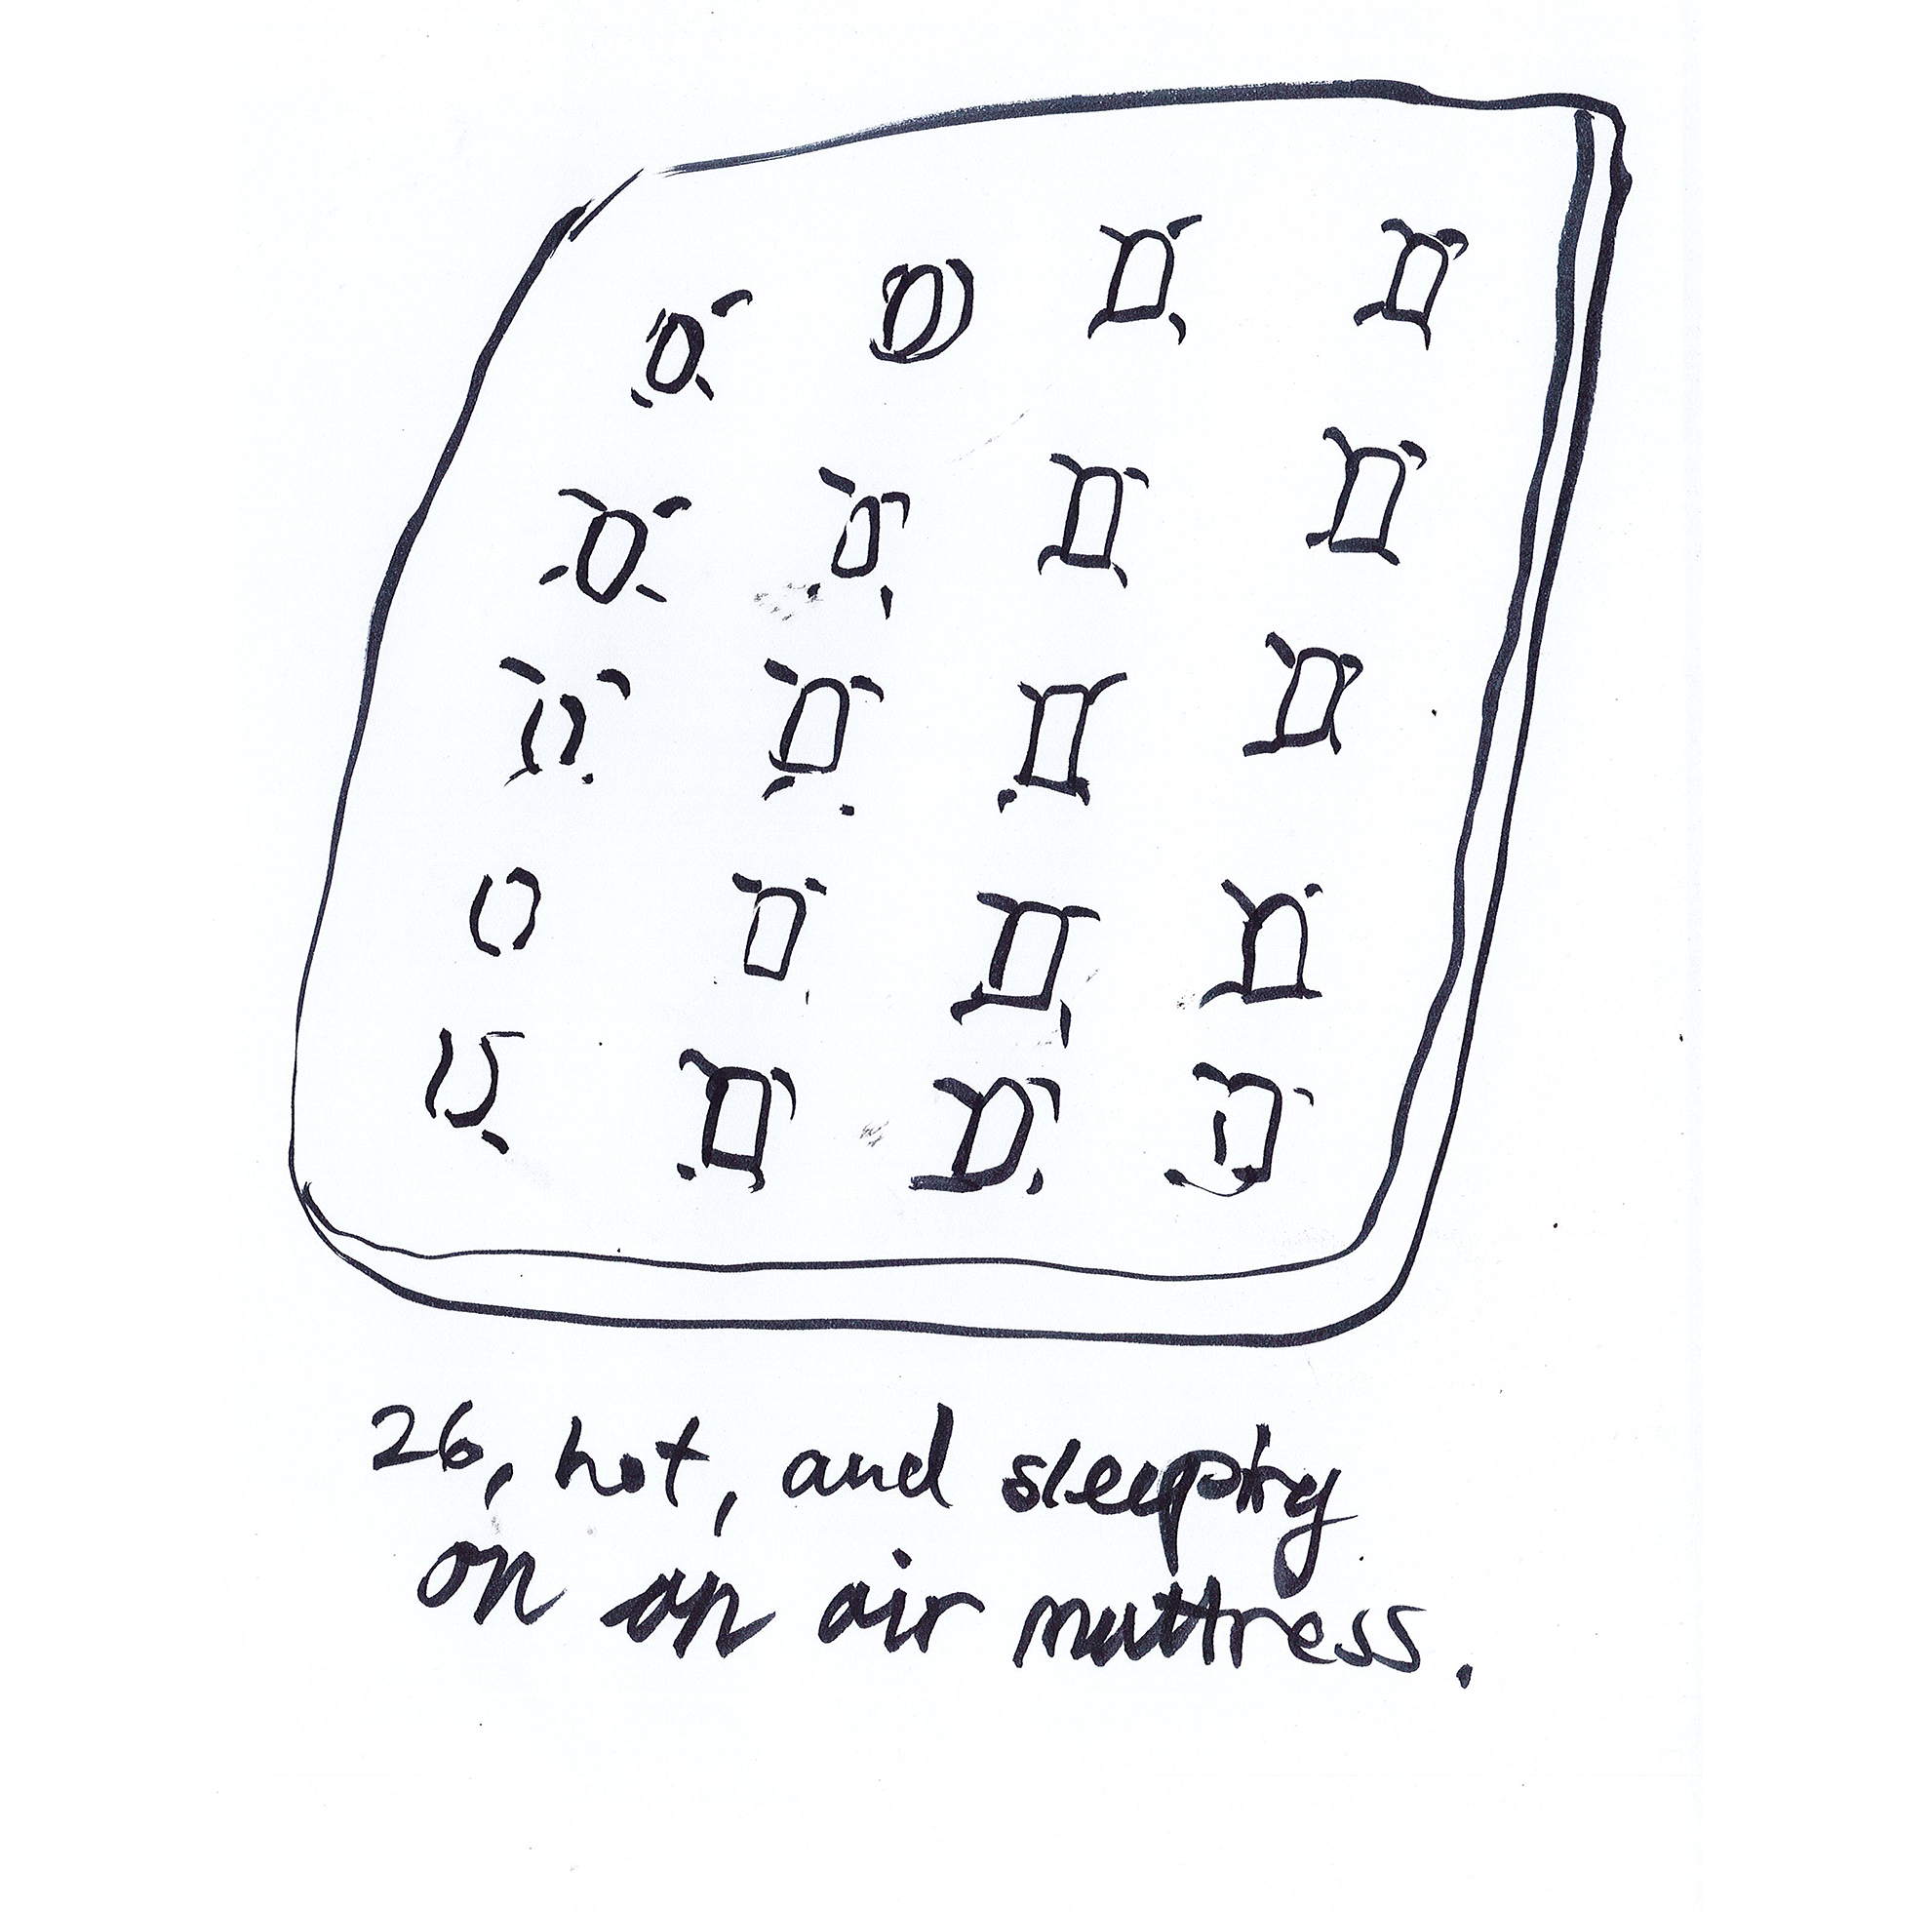 26, hot, and sleeping
on an air mattress.